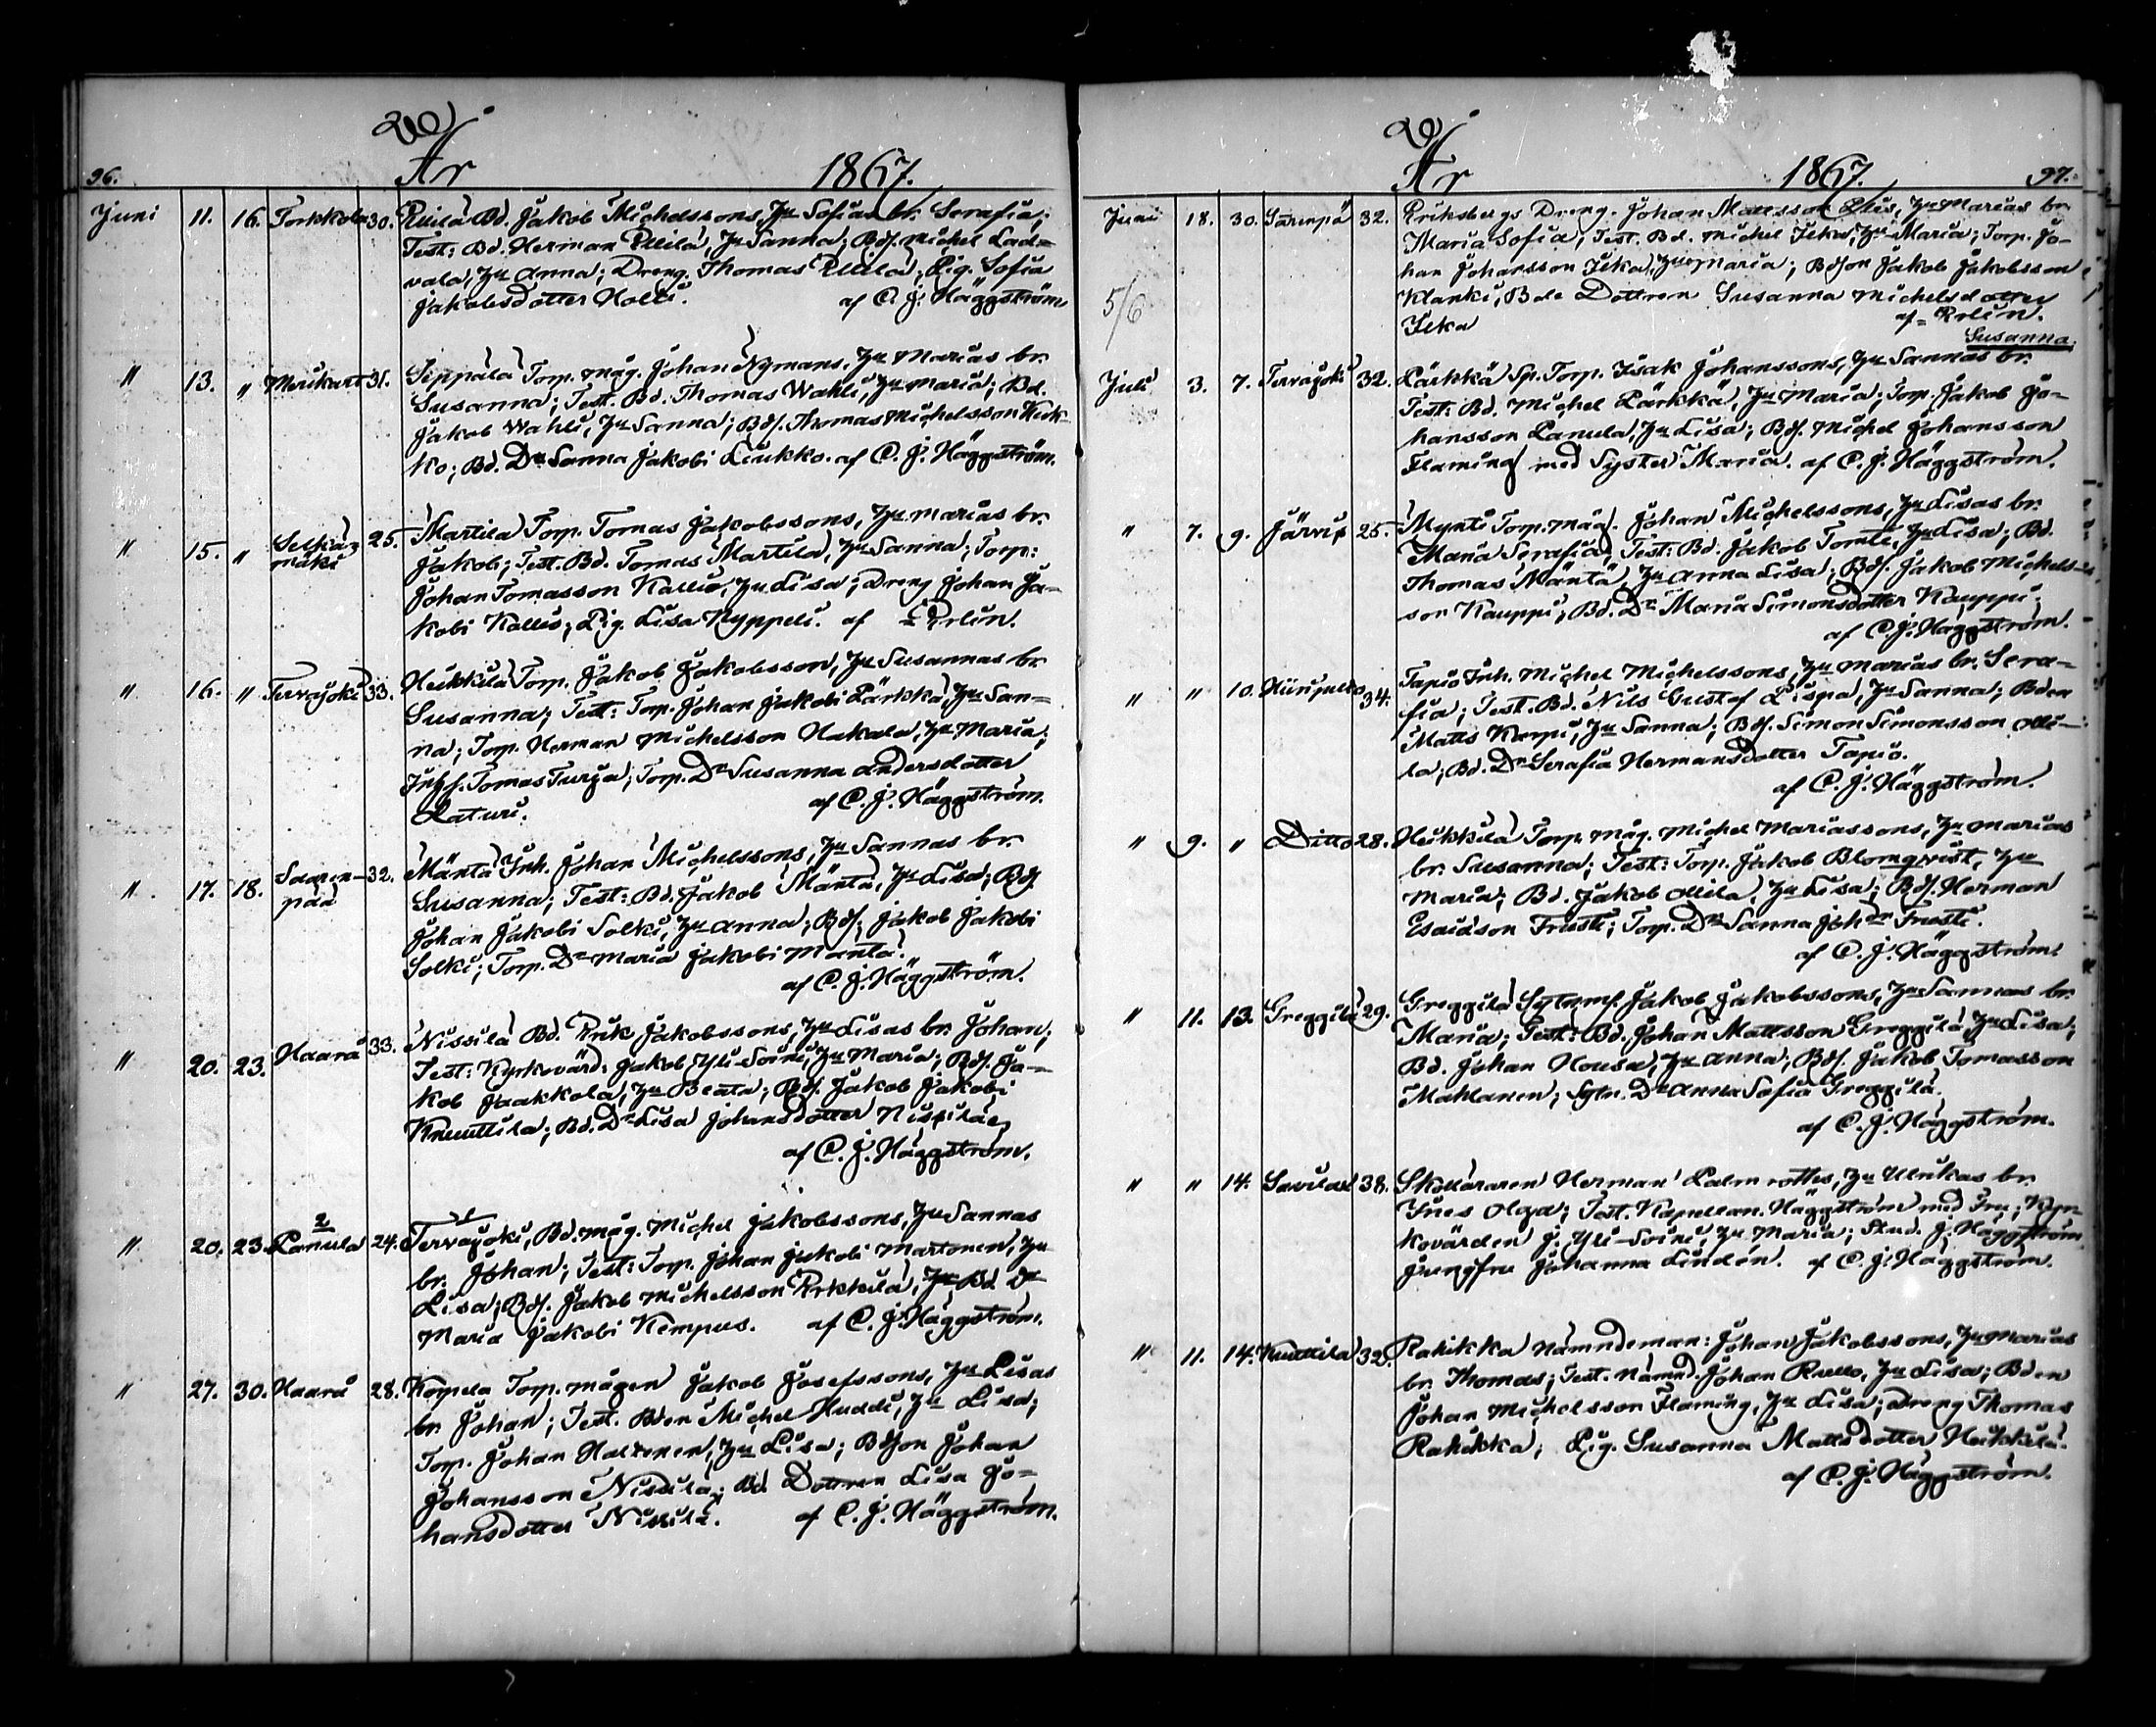 96.
År 1867.
Juni 11. 16. Torkkola 30. Ruila Bd. Jakob Michelssons, Hu Sofias br. Serafia;
Test: Bd. Herman Ellilä, Hu Sanna; Bdſ. Michel Lad-
vala, Hu Anna; Dreng Thomas Ellilä; Pig. Sofia
Jakobsdotter Holli. af C. J. Häggström
" 13. " Merikart 31. Seppälä Torp. måg. Johan Nymans, Hu Marias br.
Susanna; Test. Bd. Thomas Wahli, Hu Maria; Bd.
Jakob Wahli, Hu Sanna; Bdſ. Thomas Michelsson
ko; Bd. Dr Sanna Jakobi Liukko. af C. J. Häggström.
" 15. " Selkä-
mäki 25. Martila Torp. Tomas Jakobssons, Hu Marias br.
Jakob; Test. Bd. Tomas Martila, Hu Sanna; Torp:
Johan Tomasson Kallio, Hu Lisa; Dreng Johan Ja-
kobi Kallio; Pig. Lisa Nyppeli. af Erlin.
" 16. " Tervajoki 33. Heikkilä Torp. Jakob Jakobsson, Hu Susannas br.
Susanna; Test: Torp. Johan Jakobi Pärkkä, Hu San-
na; Torp. Herman Michelsson Hakala, Hu Maria;
Inhſ. Tomas Turja; Torp. Dr Susanna Andersdotter
Laturi. af C. J. Häggström.
" 17. 18. Saaren-
pää 32. Mäntä Inh. Johan Michelssons, Hu Sannas br.
Susanna; Test: Bd. Jakob Mäntä, Hu Lisa; Bdſ.
Johan Jakobi Solki, Hu Anna; Bdſ. Jakob Jakobi
Solki; Torp. Dr Maria Jakobi Mäntä.
af C. J. Häggström.
" 20. 23. Haarä 33. Nissilä Bd. Erik Jakobssons, Hu Lisas br. Johan;
Test: Kyrkovärd. Jakob Yli-Soini, Hu Maria; Bdſ. Ja-
kob Jaakkola, Hu Beata; Bdſ. Jakob Jakobi
Knuuttila; Bd. Dr Lisa Johansdotter Nissilä
af C. J. Häggström.
" 20. 23. Panula 24. Tervajoki, Bd. måg. Michel Jakobssons, Hu Sannas
br. Johan; Test: Torp. Johan Jakobi Martonen, Hu
Lisa; Bdſ. Jakob Michelsson Erkkilä, Bd Dr
Maria Jakobi Kempus. af C. J. Häggström.
" 27. 30. Haarä 28. Kompela Torp. mågen Jakob Josefssons, Hu Lisas
br. Johan; Test. Bden Michel Huddi, Hu Lisa;
Torp. Johan Haltonen, Hu Lisa; Bdſon Johan
Johansson Nissilä; Bd Dottren Lisa Jo-
hansdotter Nissilä. af C. J. Häggström.
År 1867. 97.
Juni 18. 30. Sarenpä 32. Eriksbergs Dreng. Johan Mattsson Hu Marias br.
5/6
Maria Sofia; Test. Bd. Michel Ilka, Hu Maria; Torp. Jo-
han Johansson Ilka, Hu Maria; Bdſon Jakob Jakobsson
Klanki, Bde Dottren Susanna Michelsdotter
Ilka af Erlin.
Susanna.
Juli 3. 7. Tervajoki 32. Pärkkä Sp. Torp. Isak Johanssons, Hu Sannas br.
Test: Bd. Michel Pärkkä, Hu Maria; Torp. Jakob Jo-
hansson Panula, Hu Lisa; Bdſ. Michel Johansson
Flaming med Syster Maria. af C. J. Häggström.
" 7. 9. Järvi 25. Mynti Torp. måg. Johan Michelssons, Hu Lisas br.
Maria Serafia; Test: Bd. Jakob Tomte, Hu Lisa; Bd.
Thomas Mäntä, Hu Anna Lisa; Bdſ. Jakob Michels-
son Kauppi; Bd. Dr Maria Simonsdotter Kauppi.
af C. J. Häggström.
" " 10. 34. Tapio Inh. Michel Michelssons, Hu Marias br. Sera-
fia; Test. Bd. Nils Gustaf Lispa, Hu Sanna; Bden
Matts Karpi, Hu Sanna; Bdſ. Simon Simonsson Olli-
la; Bd. Dr Serafia Hermansdotter Tapio.
af C. J. Häggström.
" 9. " Ditto 28. Heikkilä Torp. måg. Michel Mariassons, Hu Marias
br. Susanna; Test: Torp. Jakob Blomqvist, Hu
Maria; Bd. Jakob Ollila, Hu Lisa; Bdſ. Herman
Esaiason Frusti; Torp. Dr Sanna Johdr Frusti.
af C. J. Häggström.
" 11. 13. Greggilä 29. Greggilä Sytnmſ. Jakob Jakobssons, Hu Sannas br.
Maria; Test: Bd. Johan Mattsson Greggilä, Hu Lisa;
Bd. Johan Housa, Hu Anna; Bdſ. Jakob Tomasson
Mahlanen; Sytn. Dr Anna Sofia Greggilä.
af C. J. Häggström.
" " 14. Savilax 38. Skolläraren Herman Palmroths, Hu Ulrikas br.
Ines Olga; Test. Kapellan. Häggström med Fru; Kyr-
kovärden J. Yli-Soini, Hu Maria; Stud. J. Häggström
Jungfru Johanna Lindén. af C. J. Häggström.
" 11. 14. Knuttila 32. Rahikka Nämndeman: Johan Jakobssons, Hu Marias
br. Thomas; Test. Nämnd. Johan Rello, Hu Lisa; Bden
Johan Michelsson Flaming, Hu Lisa; Dreng Thomas
Rahikka; Pig. Susanna Mattsdotter Heikkilä.
af C. J. Häggström.